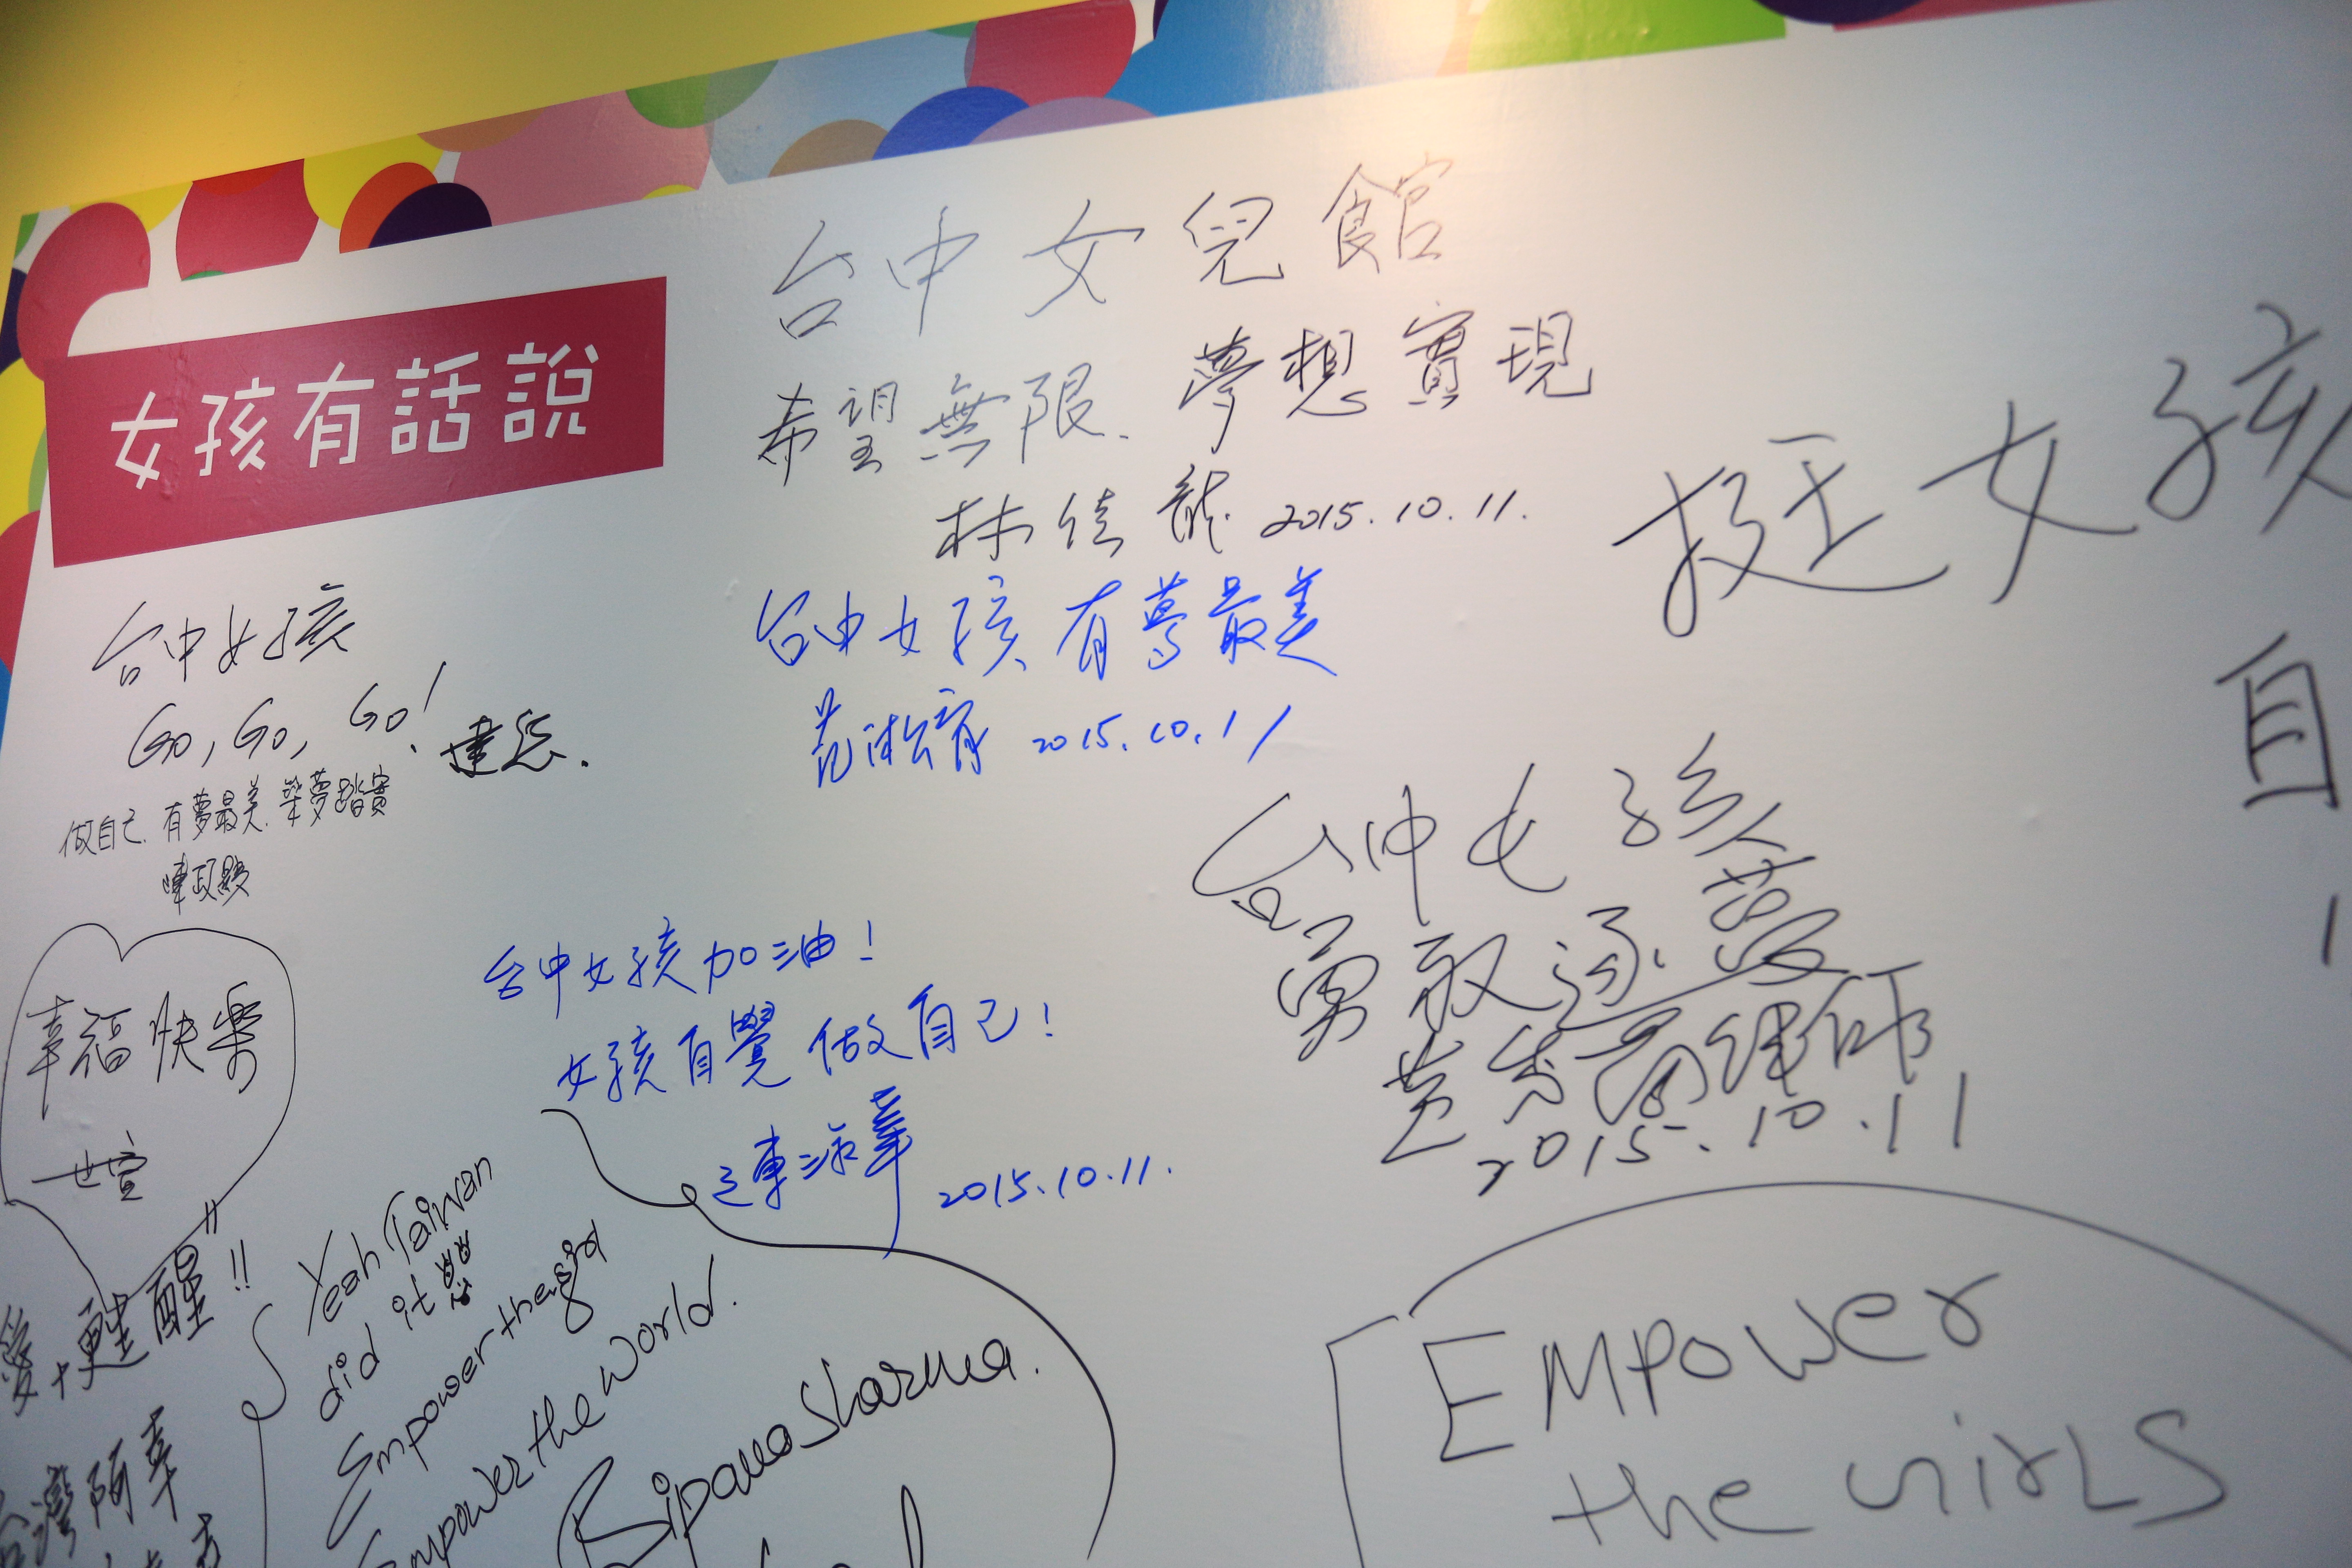 女孩有話說
台中女兒館
希望無限、夢想實現
林佳龍 2015.10.11.
挺女孩
自
台中女孩、有夢最美
范淑 2015.10.11
台中女孩
Go, Go, Go!
做自己、有夢最美、築夢踏實
台中女孩
勇敢逐夢
2015.10.11
台中女孩加油！
女孩自覺 做自己！
2015.10.11.
幸福快樂
世宣
醒!!
Yeah Taiwan
did it
Empower the girl
Empower the world.
Bipana Sharma.
台灣
Empower
the GirLS